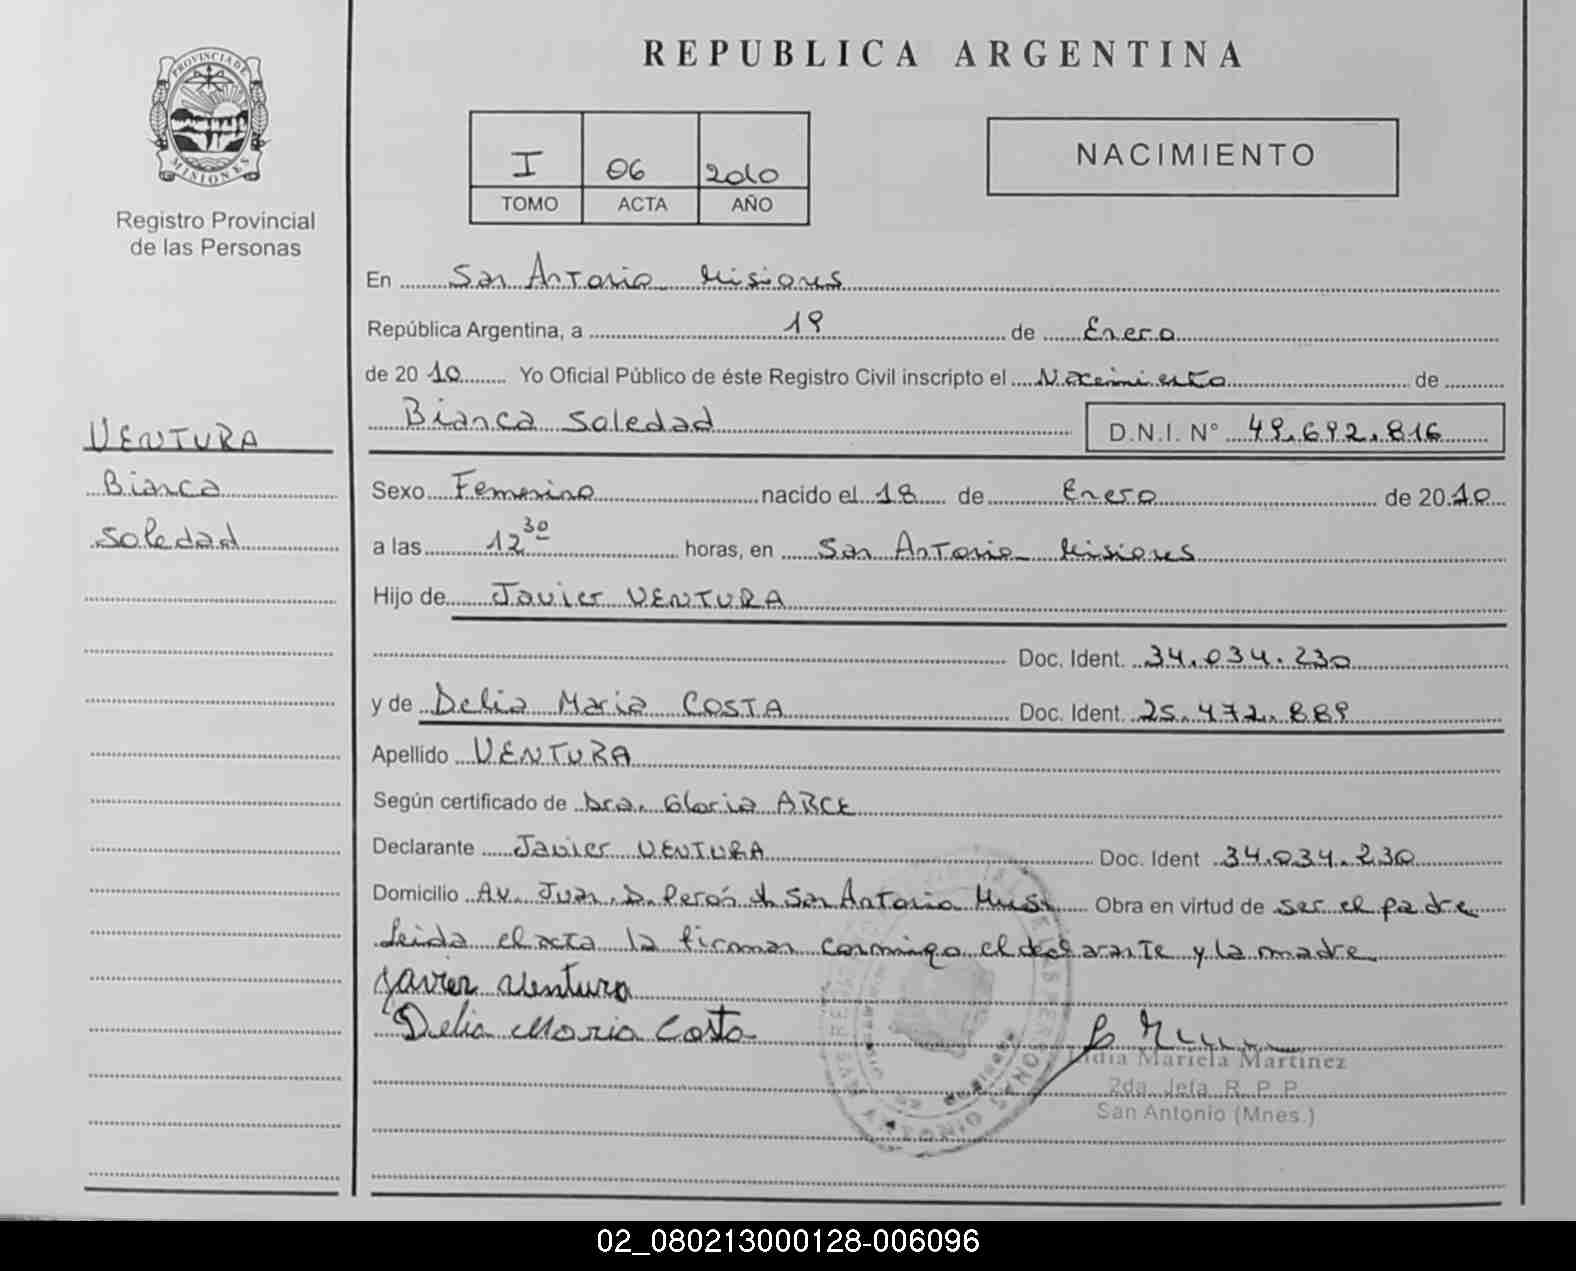 PROVINCIA DE
MISIONES
Registro Provincial
de las Personas
VENTURA
Bianca
Soledad
REPUBLICA ARGENTINA
I 06 2010
TOMO ACTA AÑO
NACIMIENTO
En San Antonio Misiones
República Argentina, a 19 de Enero
de 2010 Yo Oficial Público de éste Registro Civil inscripto el Nacimiento de
Bianca Soledad D.N.I. N° 49.692.816
Sexo Femenino nacido el 18 de Enero de 2010
a las 12 30 horas, en San Antonio Misiones
Hijo de Javier VENTURA
Doc. Ident. 34.034.230
y de Delia Maria COSTA Doc. Ident. 25.472.889
Apellido VENTURA
Según certificado de Dra. Gloria ARCE
Declarante Javier VENTURA Doc. Ident 34.034.230
Domicilio Av. Juan D. Perón San Antonio Mnes Obra en virtud de ser el padre
Leida el acta la firman conmigo el declarante y la madre
Javier Ventura
Delia Maria Costa
Lidia Mariela Martinez
2da. Jefa R. P. P.
San Antonio (Mnes.)
02_080213000128-006096